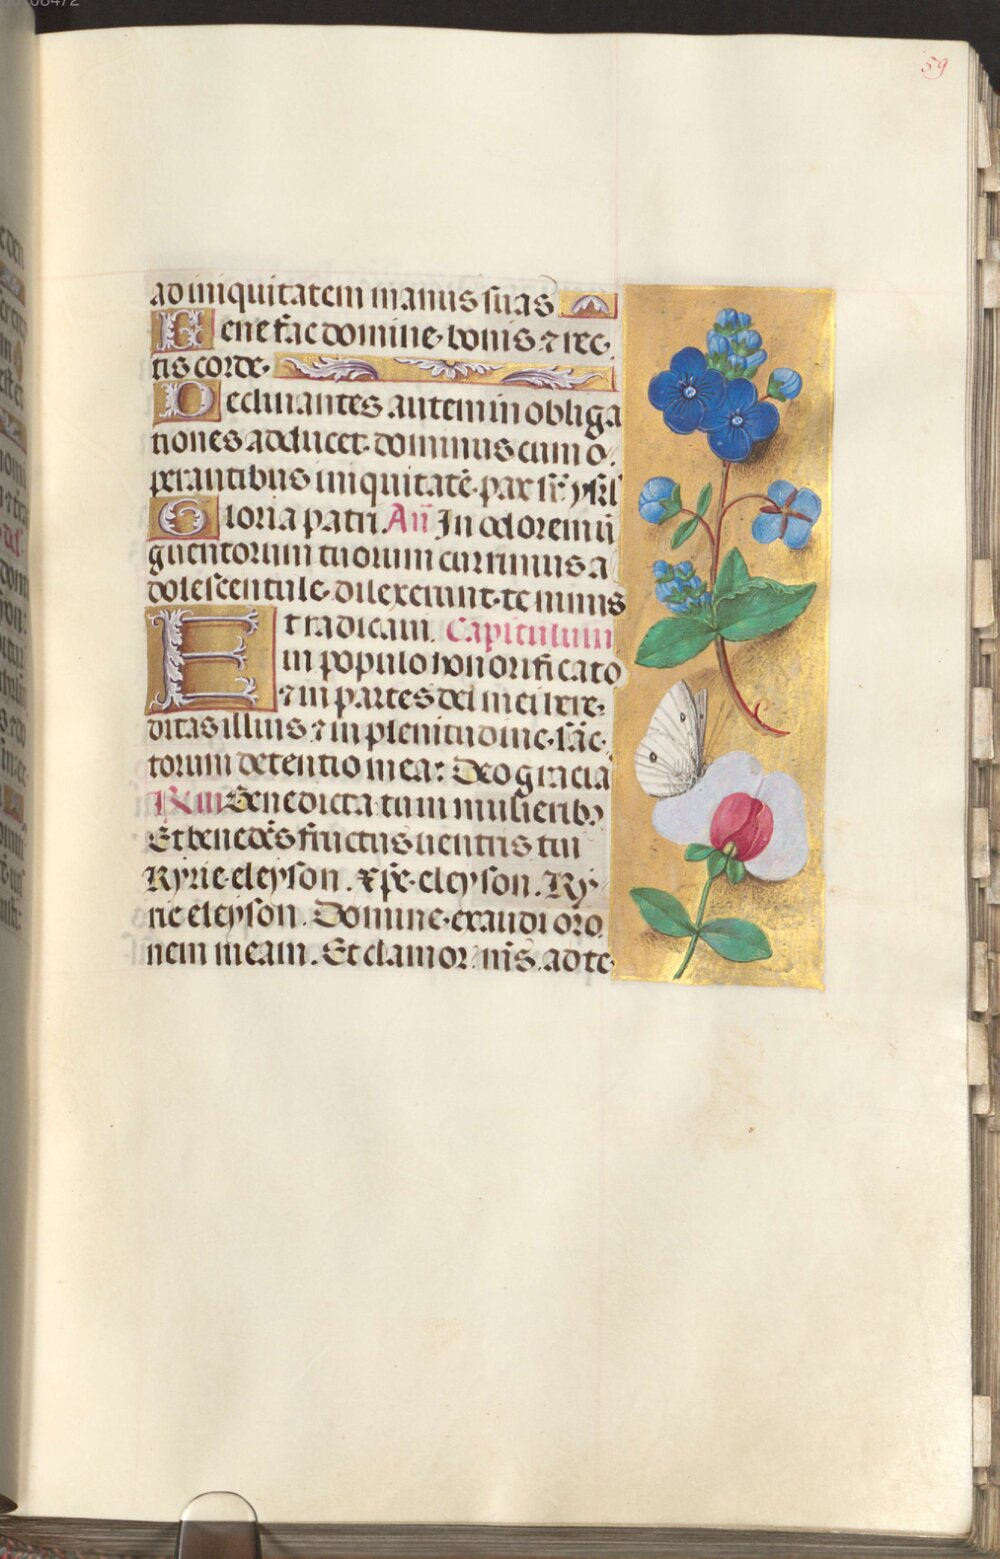 59
ad iniquitatem manus suas
Bene fac domine· bonis· ⁊ rec·
tis corde·
Declinantes autem in obliga
tiones adducet· dominus cum o·
perantibus iniquitatē· pax sr̄ ysrl
Gloria patri Añ In odorem ū
guentorum tuorum currimus a
dolescentule· dilexerunt· te nimis
Et radicaui. Capitulum
in populo honorificato
⁊ in partes dei mei here·
ditas illius ⁊ in plenitudine· sāc·
torum detentio mea: Deo gracia
Benedicta tu in mulierib⁊
Et benedc̄s fructus uentris tui
Kyrie· eleyson. xp̄e· eleyson. Ky·
rie eleyson. Domine· exaudi oro
nem meam. Et clamor m̄s ad te·